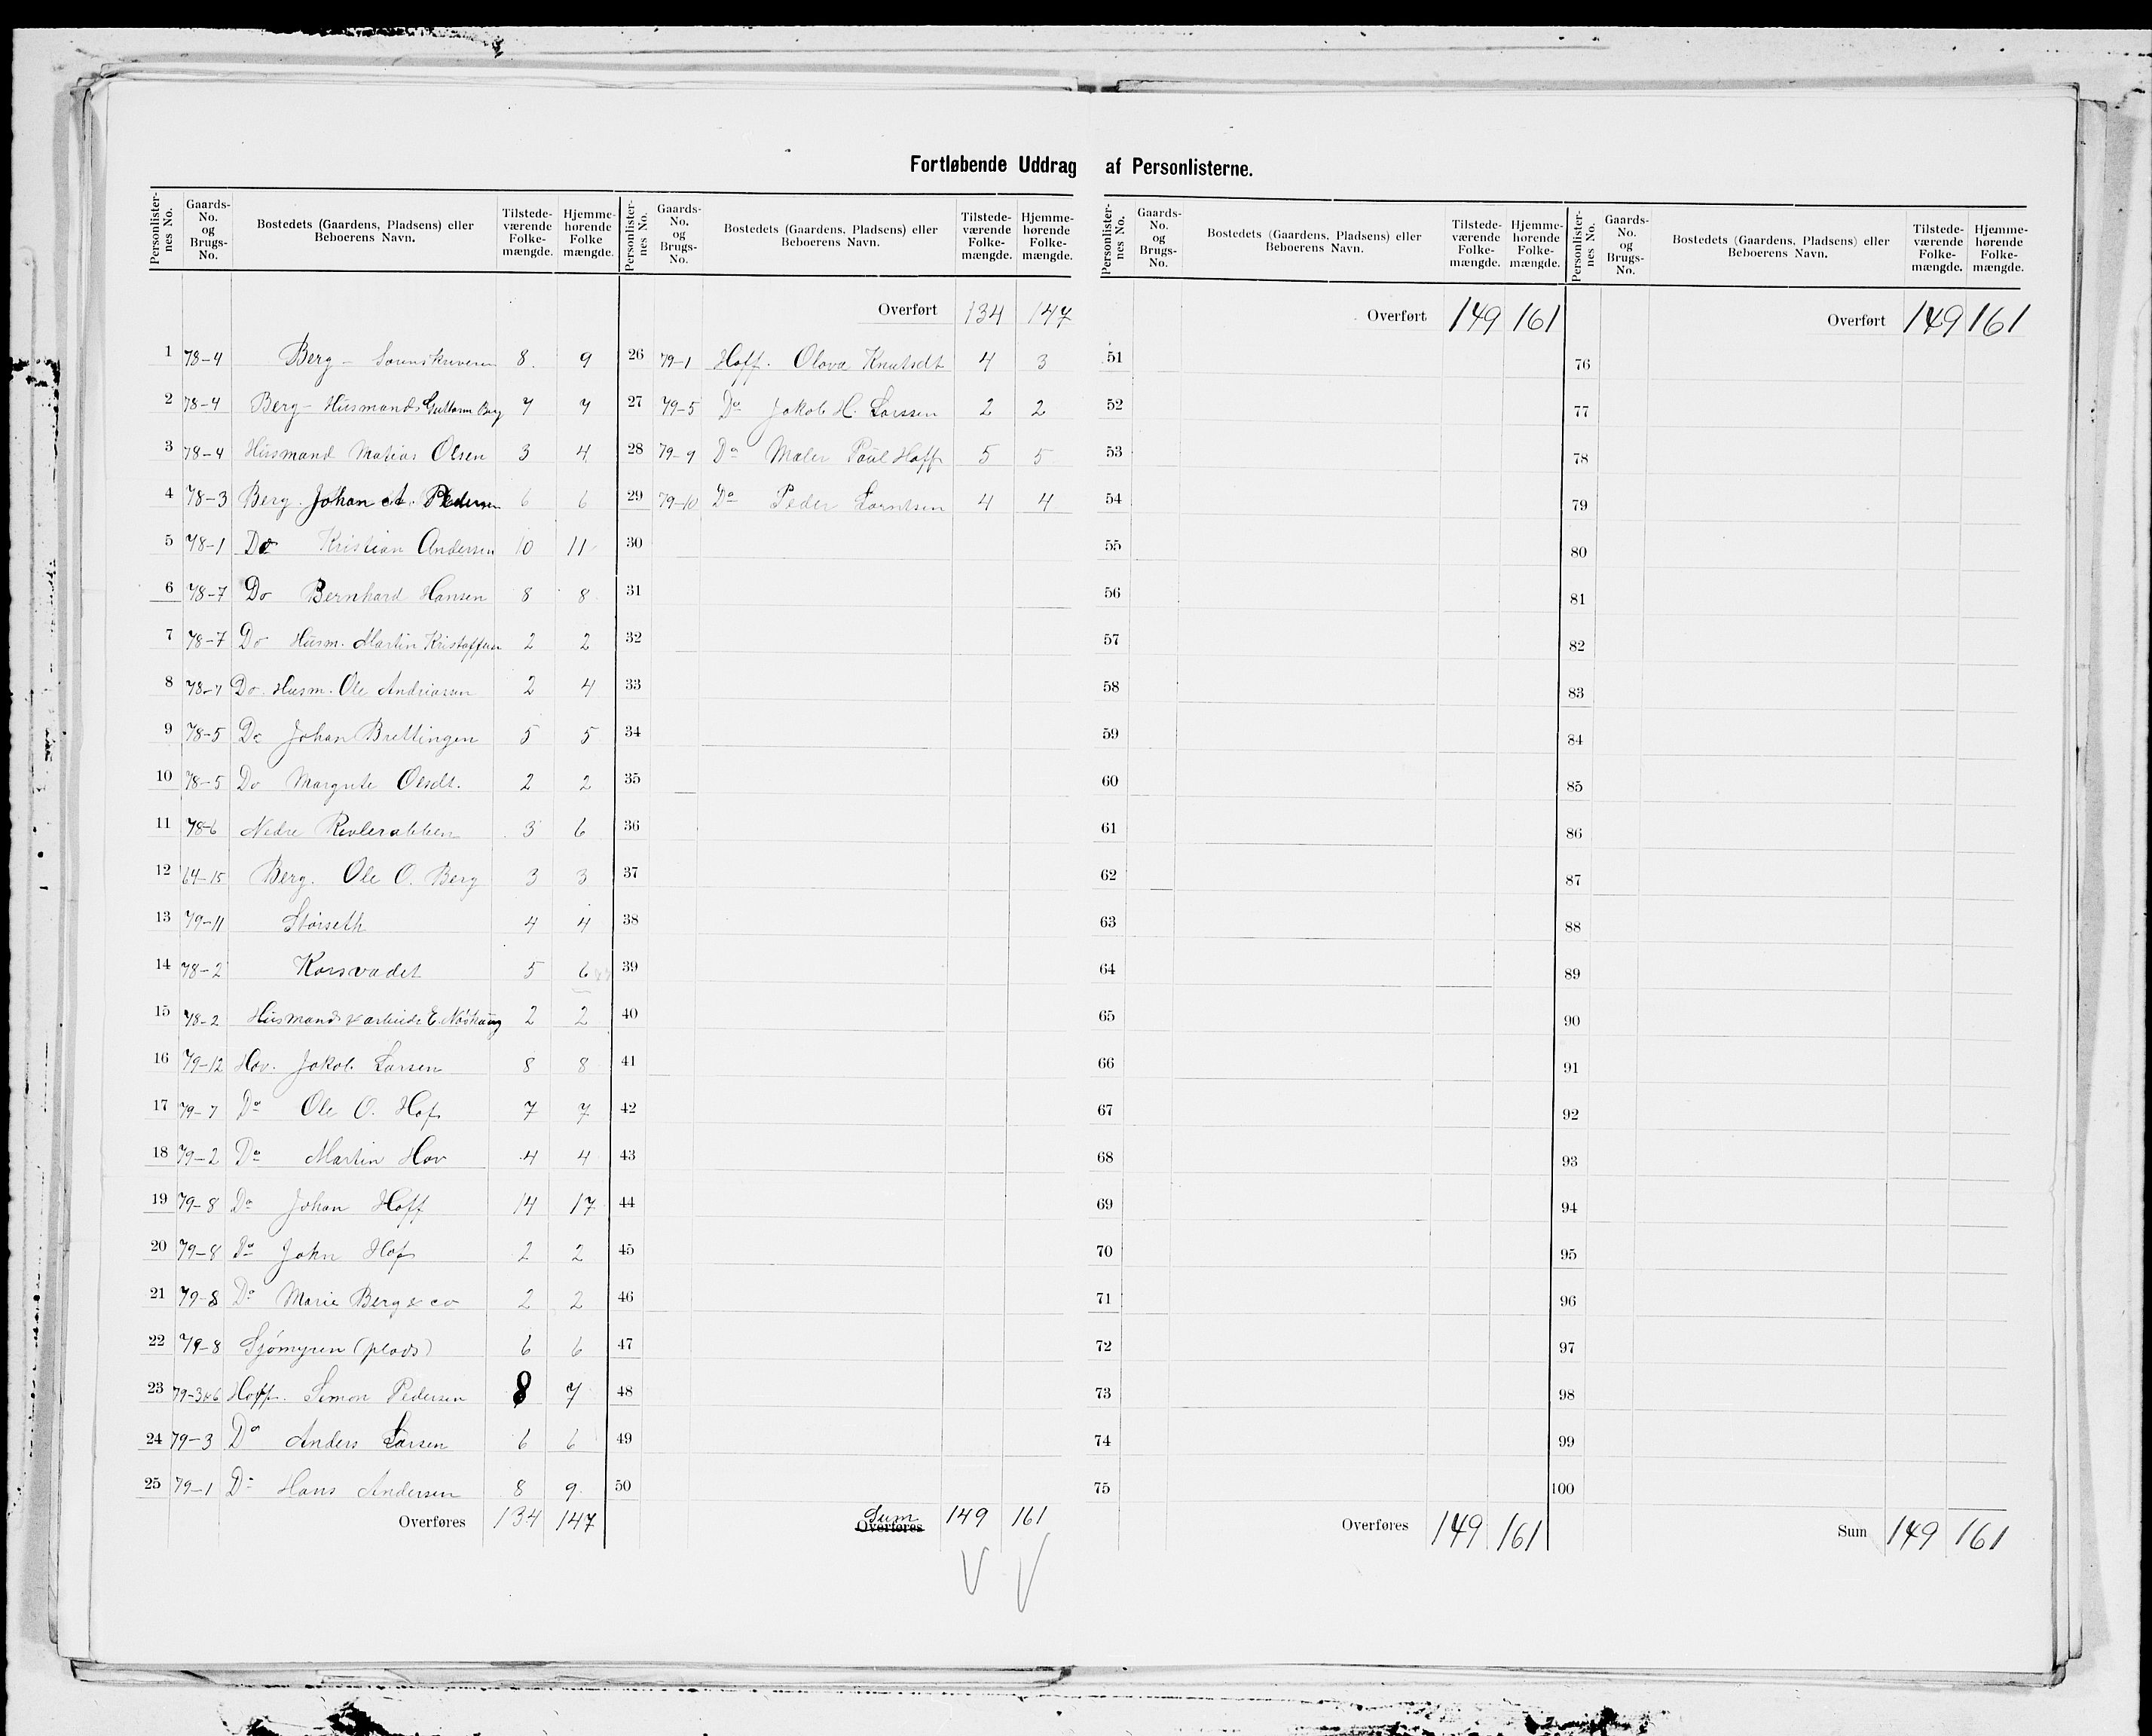 Fortløbende Uddrag af Personlisterne.
Personlister-nes No. | Gaards-No. og Brugs-No. | Bostedets (Gaardens, Pladsens) eller Beboerens Navn. | Tilstede-værende Folke-mængde. | Hjemme-hørende Folke mængde.
1 78-4 Berg - Sorenskriveren 8 9
2 78-4 Berg - Husmand Guttorm Berg 7 7
3 78-4 Husmand Matias Olsen 3 4
4 78-3 Berg. Johan A. Pedersen 6 6
5 78-1 Do Kristian Andersen 10 11
6 78-7 Do Bernhard Hansen 8 8
7 78-7 Do Husm. Martin Kristoffersen 2 2
8 78-7 Do. Husm. Ole Andriassen 2 4
9 78-5 Do Johan Brettingen 5 5
10 78-5 Do Margrete Olsdt. 2 2
11 78-6 Nedre 3 6
12 64-15 Berg. Ole O. Berg 3 3
13 79-11 Størseth 4 4
14 78-2 Korsvadet 5 6
15 78-2 Husmand & arbeider E. 2 2
16 79-12 Hov. Jakob Larsen 8 8
17 79-7 Do Ole O. Hof 7 7
18 79-2 Do Martin Hov 4 4
19 79-8 Do Johan Hoff 14 17
20 79-8 Do John Hof 2 2
21 79-8 Do Marie Berg & co 2 2
22 79-8 Sjømyren (plads) 6 6
23 79-3&6 Hoff. Simon Pedersen 8 7
24 79-3 Do Anders Larsen 6 6
25 79-1 Do Hans Andersen 8 9
Overføres 134 147
Personlister-nes No. | Gaards-No. og Brugs-No. | Bostedets (Gaardens, Pladsens) eller Beboerens Navn. | Tilstede-værende Folke-mængde. | Hjemme-hørende Folke-mængde.
Overført 134 147
26 79-1 Hoff. Olava Knutsdt 4 3
27 79-5 Do Jakob H. Larssen 2 2
28 79-9 Do Maler Paul Hoff 5 5
29 79-10 Do Peder Lorntsen 4 4
30
31
32
33
34
35
36
37
38
39
40
41
42
43
44
45
46
47
48
49
50
Overføres Sum 149 161
Personlister-nes No. | Gaards-No. og Brugs-No. | Bostedets (Gaardens, Pladsens) eller Beboerens Navn. | Tilstede-værende Folke-mængde. | Hjemme-hørende Folke-mængde.
Overført 149 161
51
52
53
54
55
56
57
58
59
60
61
62
63
64
65
66
67
68
69
70
71
72
73
74
75
Overføres 149 161
Personlister-nes No. | Gaards-No. og Brugs-No. | Bostedets (Gaardens, Pladsens) eller Beboerens Navn. | Tilstede-værende Folke-mængde. | Hjemme-hørende Folke-mængde.
Overført 149 161
76
77
78
79
80
81
82
83
84
85
86
87
88
89
90
91
92
93
94
95
96
97
98
99
100
Sum 149 161